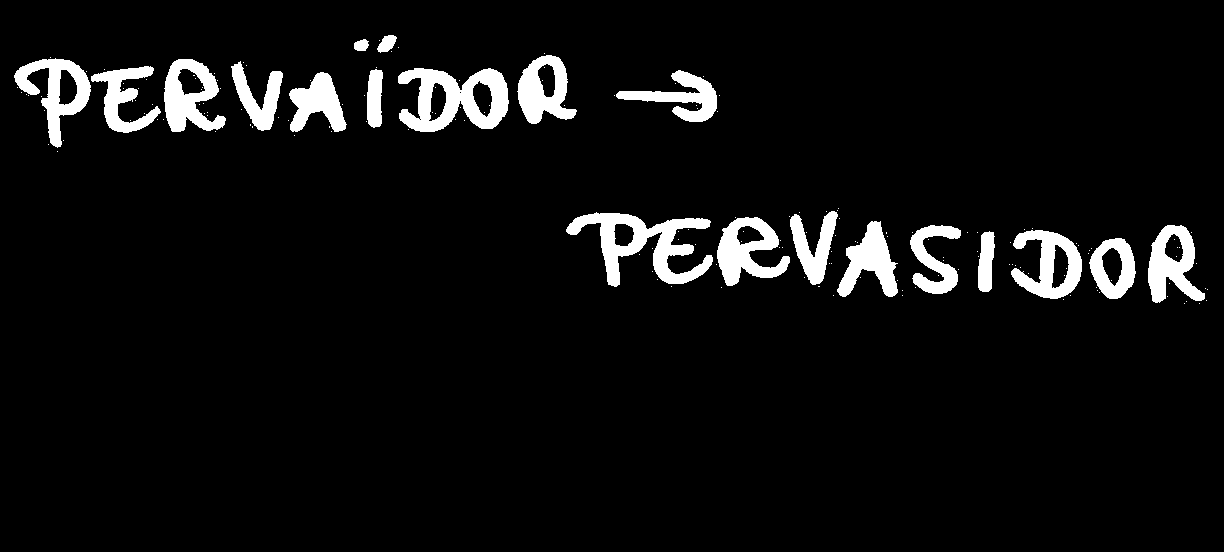 PERVAÏDOR →
PERVASIDOR